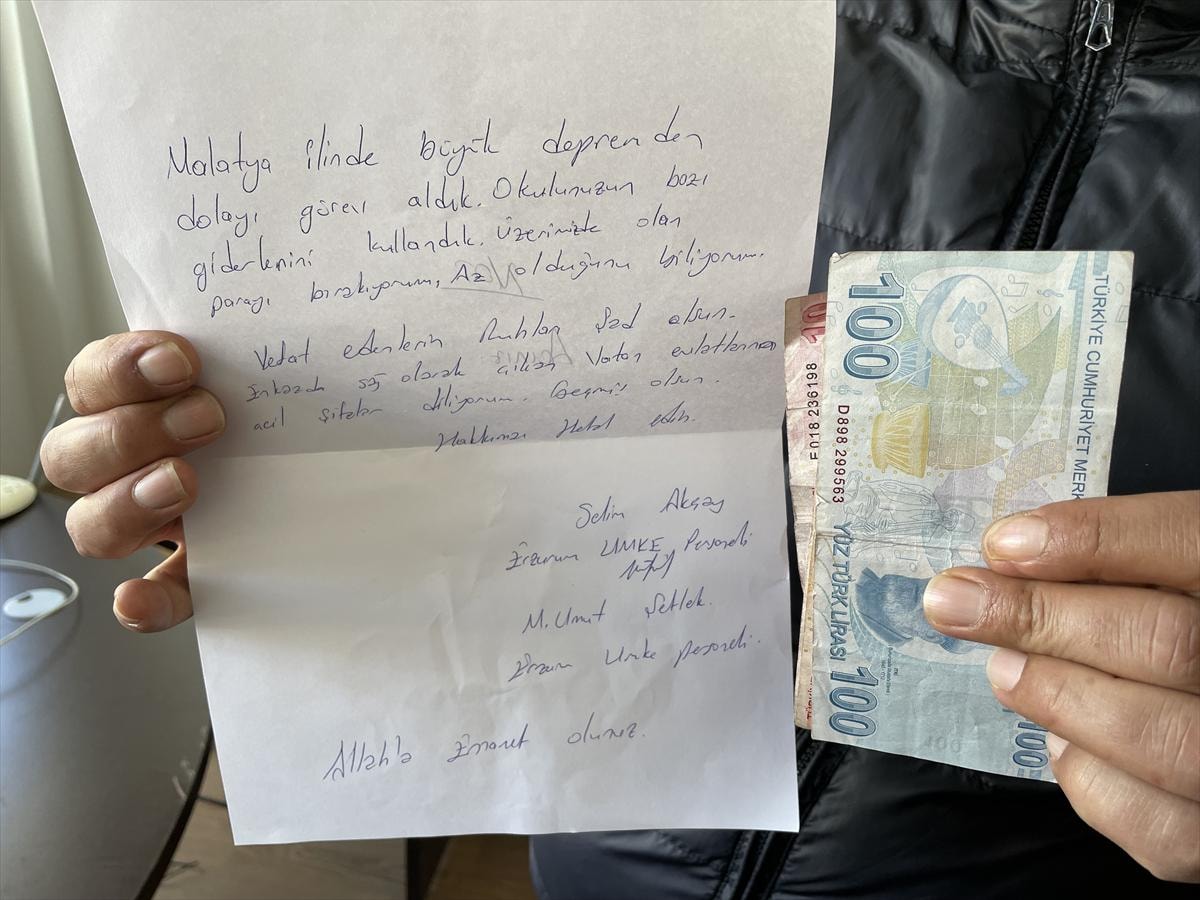 Malatya ilinde büyük depremden
dolayı görev aldık. Okulunuzun bazı
giderlerini kullandık. Üzerimizde olan
parayı bırakıyorum, Az olduğunu biliyorum.
Vefat edenlerin Ruhları Şad olsun.
Enkazda sağ olarak çıkan Vatan evlatlarına
acil şifalar diliyorum. Geçmiş olsun.
Hakkınızı Helal edin.
Selim Akçay
Erzurum UMKE Personeli
M. Umut
Erzurum Umke personeli.
Allah'a Emanet olunuz.
10
F018 236198
100
D898 299563
TÜRKİYE CUMHURİYET MERK
YÜZ TÜRK LİRASI
100
100